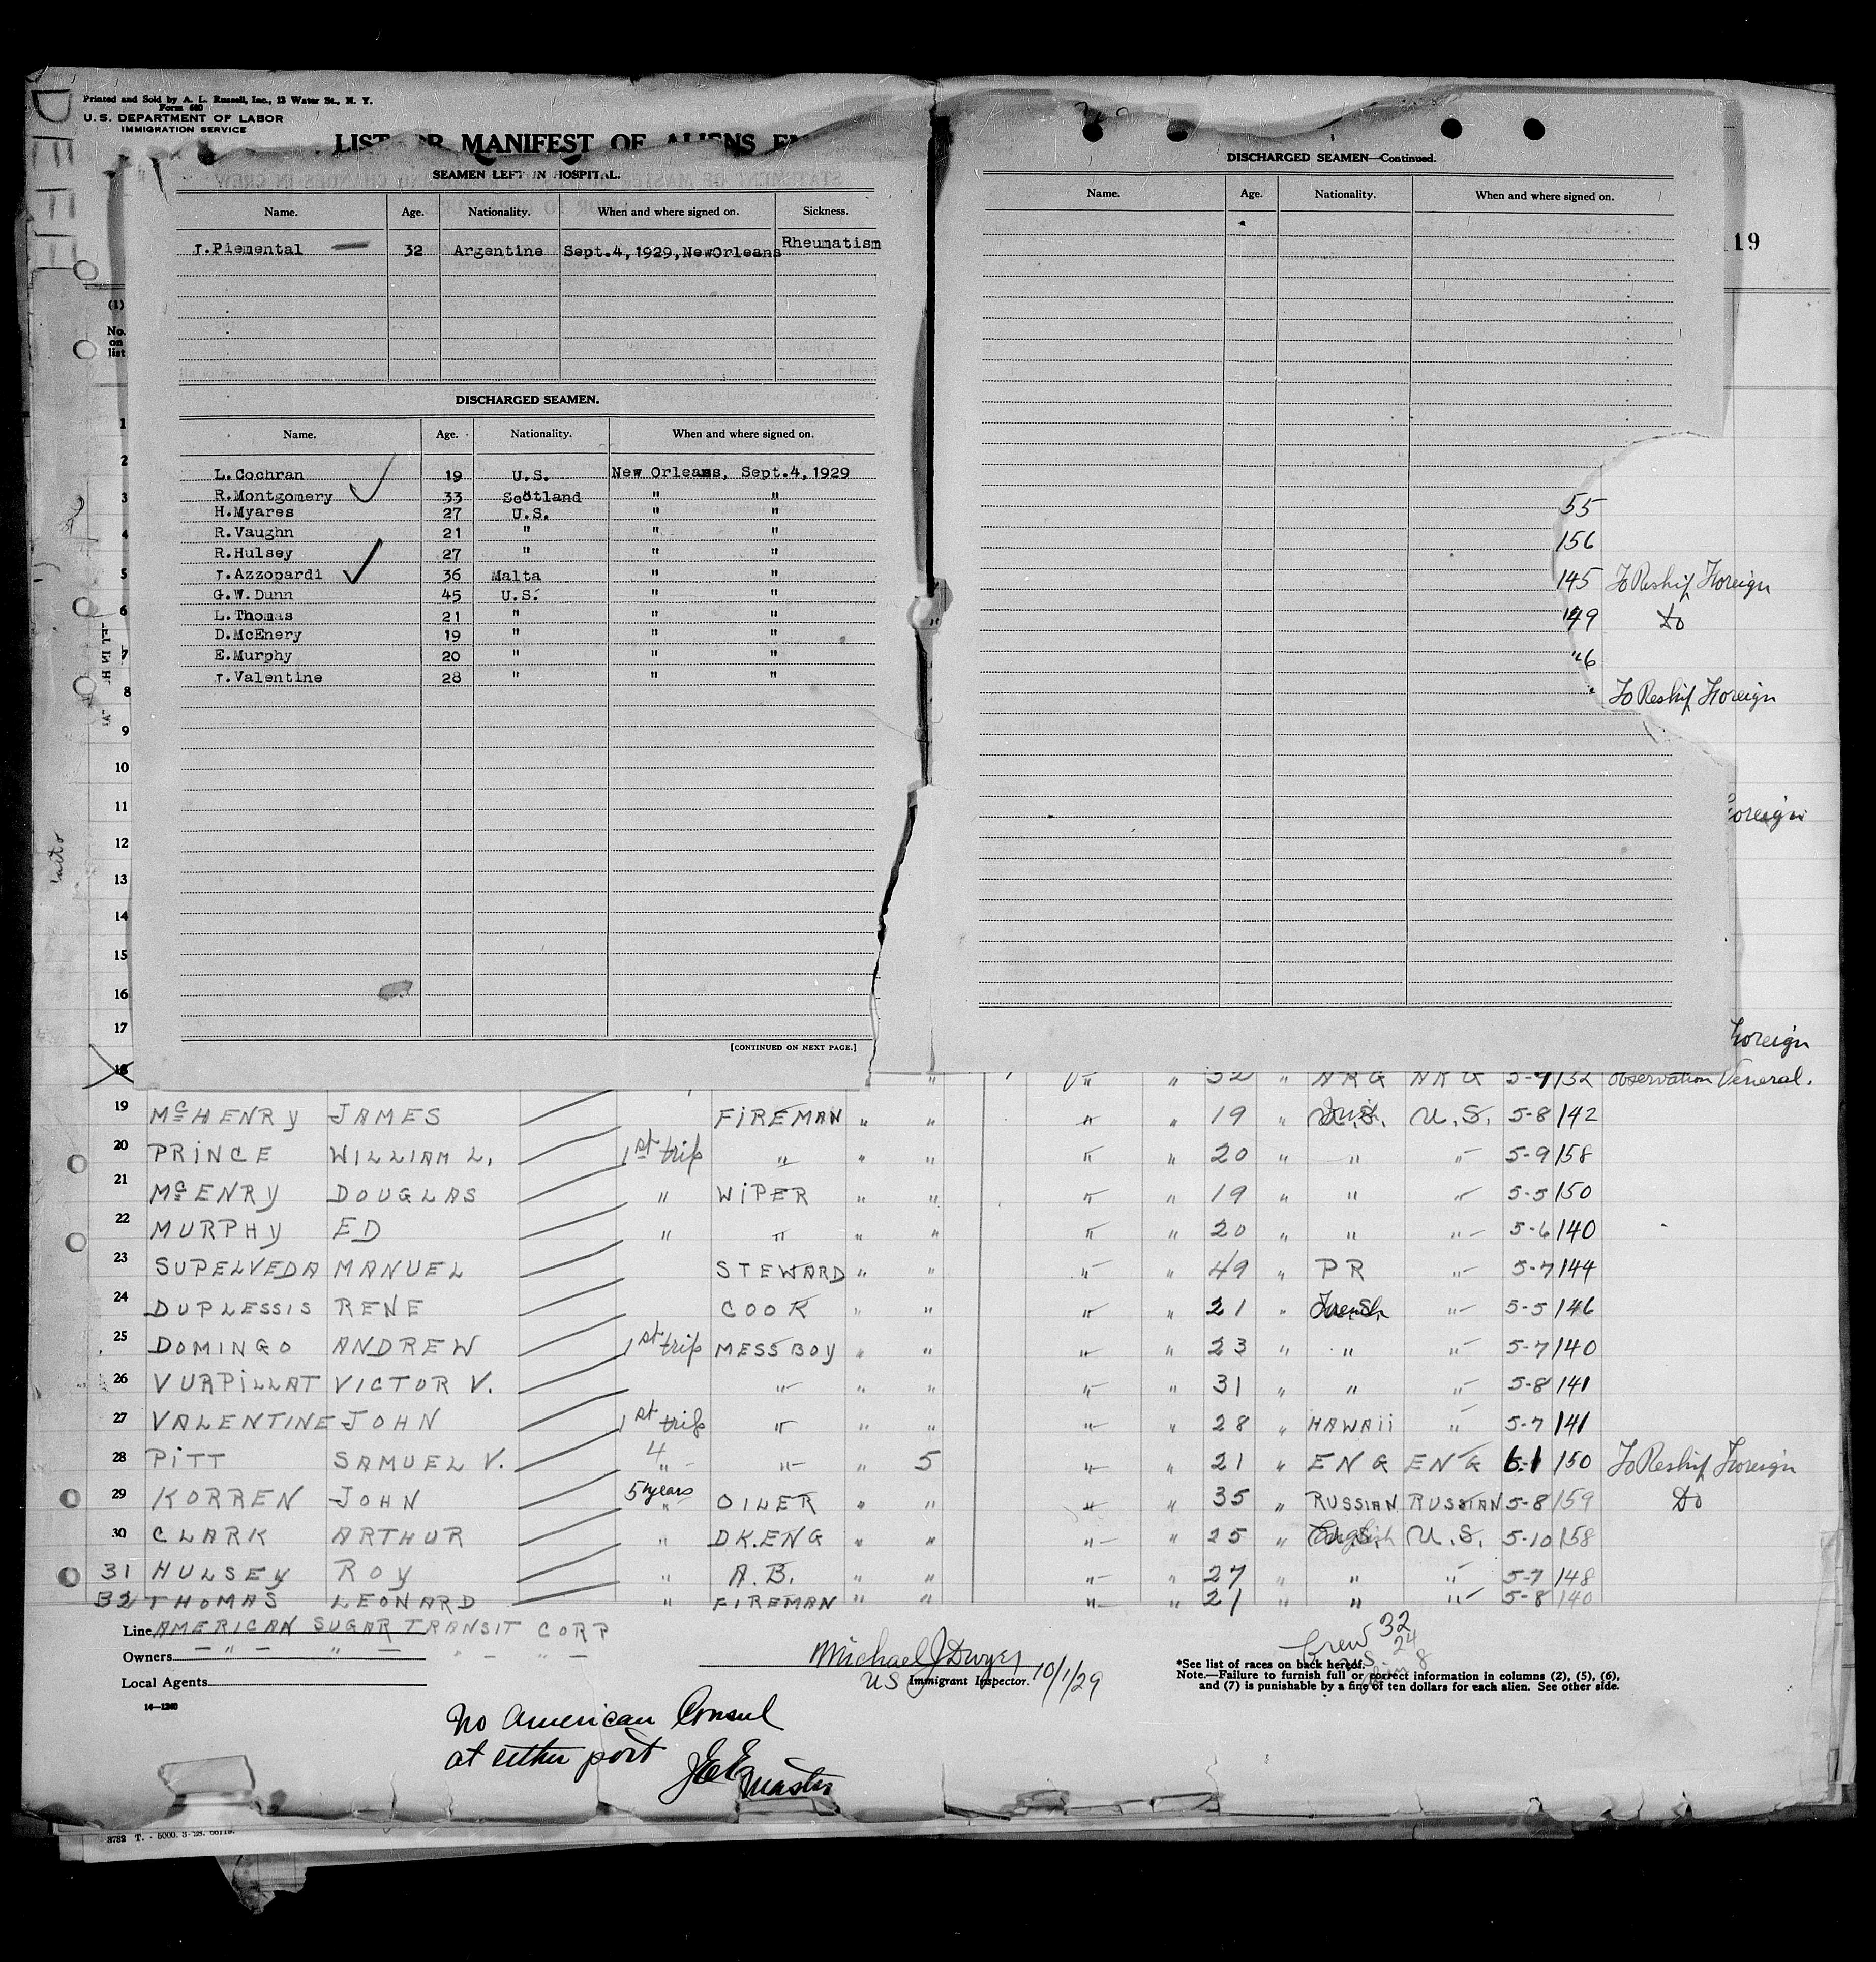 Printed and Sold by A. L. Russell, Inc., 13 Water St., N. Y.
Form 680
U. S. DEPARTMENT OF LABOR
IMMIGRATION SERVICE
LIST OR MANIFEST OF ALIENS EM
SEAMEN LEFT IN HOSPITAL.
Name. Age. Nationality. When and where signed on. Sickness.
J.Piemental 32 Argentine Sept.4,1929,NewOrleans Rheumatism
DISCHARGED SEAMEN.
Name. Age. Nationality. When and where signed on.
L.Cochran 19 U.S. New Orleans, Sept.4,1929
R.Montgomery 33 Scotland " "
H.Myares 27 U.S. " "
R.Vaughn 21 " " "
R.Hulsey 27 " " "
J.Azzopardi 36 Malta " "
G.W.Dunn 45 U.S. " "
L.Thomas 21 " " "
D.McEnery 19 " " "
E.Murphy 20 " " "
J.Valentine 28 " " "
[CONTINUED ON NEXT PAGE.]
DISCHARGED SEAMEN—Continued.
Name. Age. Nationality. When and where signed on.
119
(1)
No.
on
list
1
2
3 55
4 156
5 145 To Reship Foreign
6 149 Do
7
8 To Reship Foreign
9
10
11 Foreign
12
13
14
15
16
17 Foreign
18 " " 32 " ARG ARG 5-9 132 Observation Veneral.
19 McHENRY JAMES FIREMAN " " " " 19 " U.S. 5-8 142
20 PRINCE WILLIAM L. 1st trip " " " " " 20 " " " 5-9 158
21 McENRY DOUGLAS " WIPER " " " " 19 " " " 5-5 150
22 MURPHY ED " " " " " " 20 " " " 5-6 140
23 SUPELVEDA MANUEL STEWARD " " " " 49 " PR " 5-7 144
24 DUPLESSIS RENE COOK " " " " 21 " French " 5-5 146
25 DOMINGO ANDREW 1st trip MESSBOY " " " " 23 " " " 5-7 140
26 VURPILLAT VICTOR V. " " " " " 31 " " " 5-8 141
27 VALENTINE JOHN 1st trip " " " " " 28 " HAWAII " 5-7 141
28 PITT SAMUEL V. 4 " " " 5 " " 21 " ENG ENG 6-1 150 To Reship Foreign
29 KORREN JOHN 5 years OILER " " " " 35 " RUSSIAN RUSSIAN 5-8 159 Do
30 CLARK ARTHUR " DK.ENG " " " " 25 " English U.S. 5-10 158
31 HULSEY ROY " A.B. " " " " 27 " " " 5-7 148
32 THOMAS LEONARD " FIREMAN " " " " 21 " " " 5-8 140
Line AMERICAN SUGAR TRANSIT CORP
Owners " " " "
Local Agents
14—1240
Michael J Dwyer
US Immigrant Inspector. 10/1/29
Crew 32
24
8
*See list of races on back hereof.
Note.—Failure to furnish full or correct information in columns (2), (5), (6),
and (7) is punishable by a fine of ten dollars for each alien. See other side.
No American Consul
at either port
Master